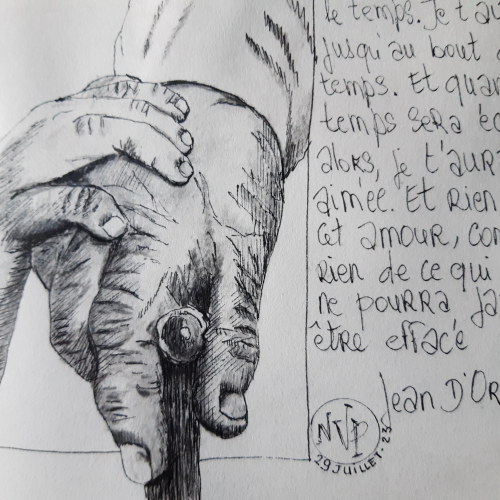 le temps. Je t'au
jusqu'au bout d
temps. Et quan
temps sera éc
alors, je t'aura
aimée. Et rien
cet amour, com
rien de ce qui
ne pourra ja
être effacé
Jean D'Or
NVP
29 JUILLET. 23